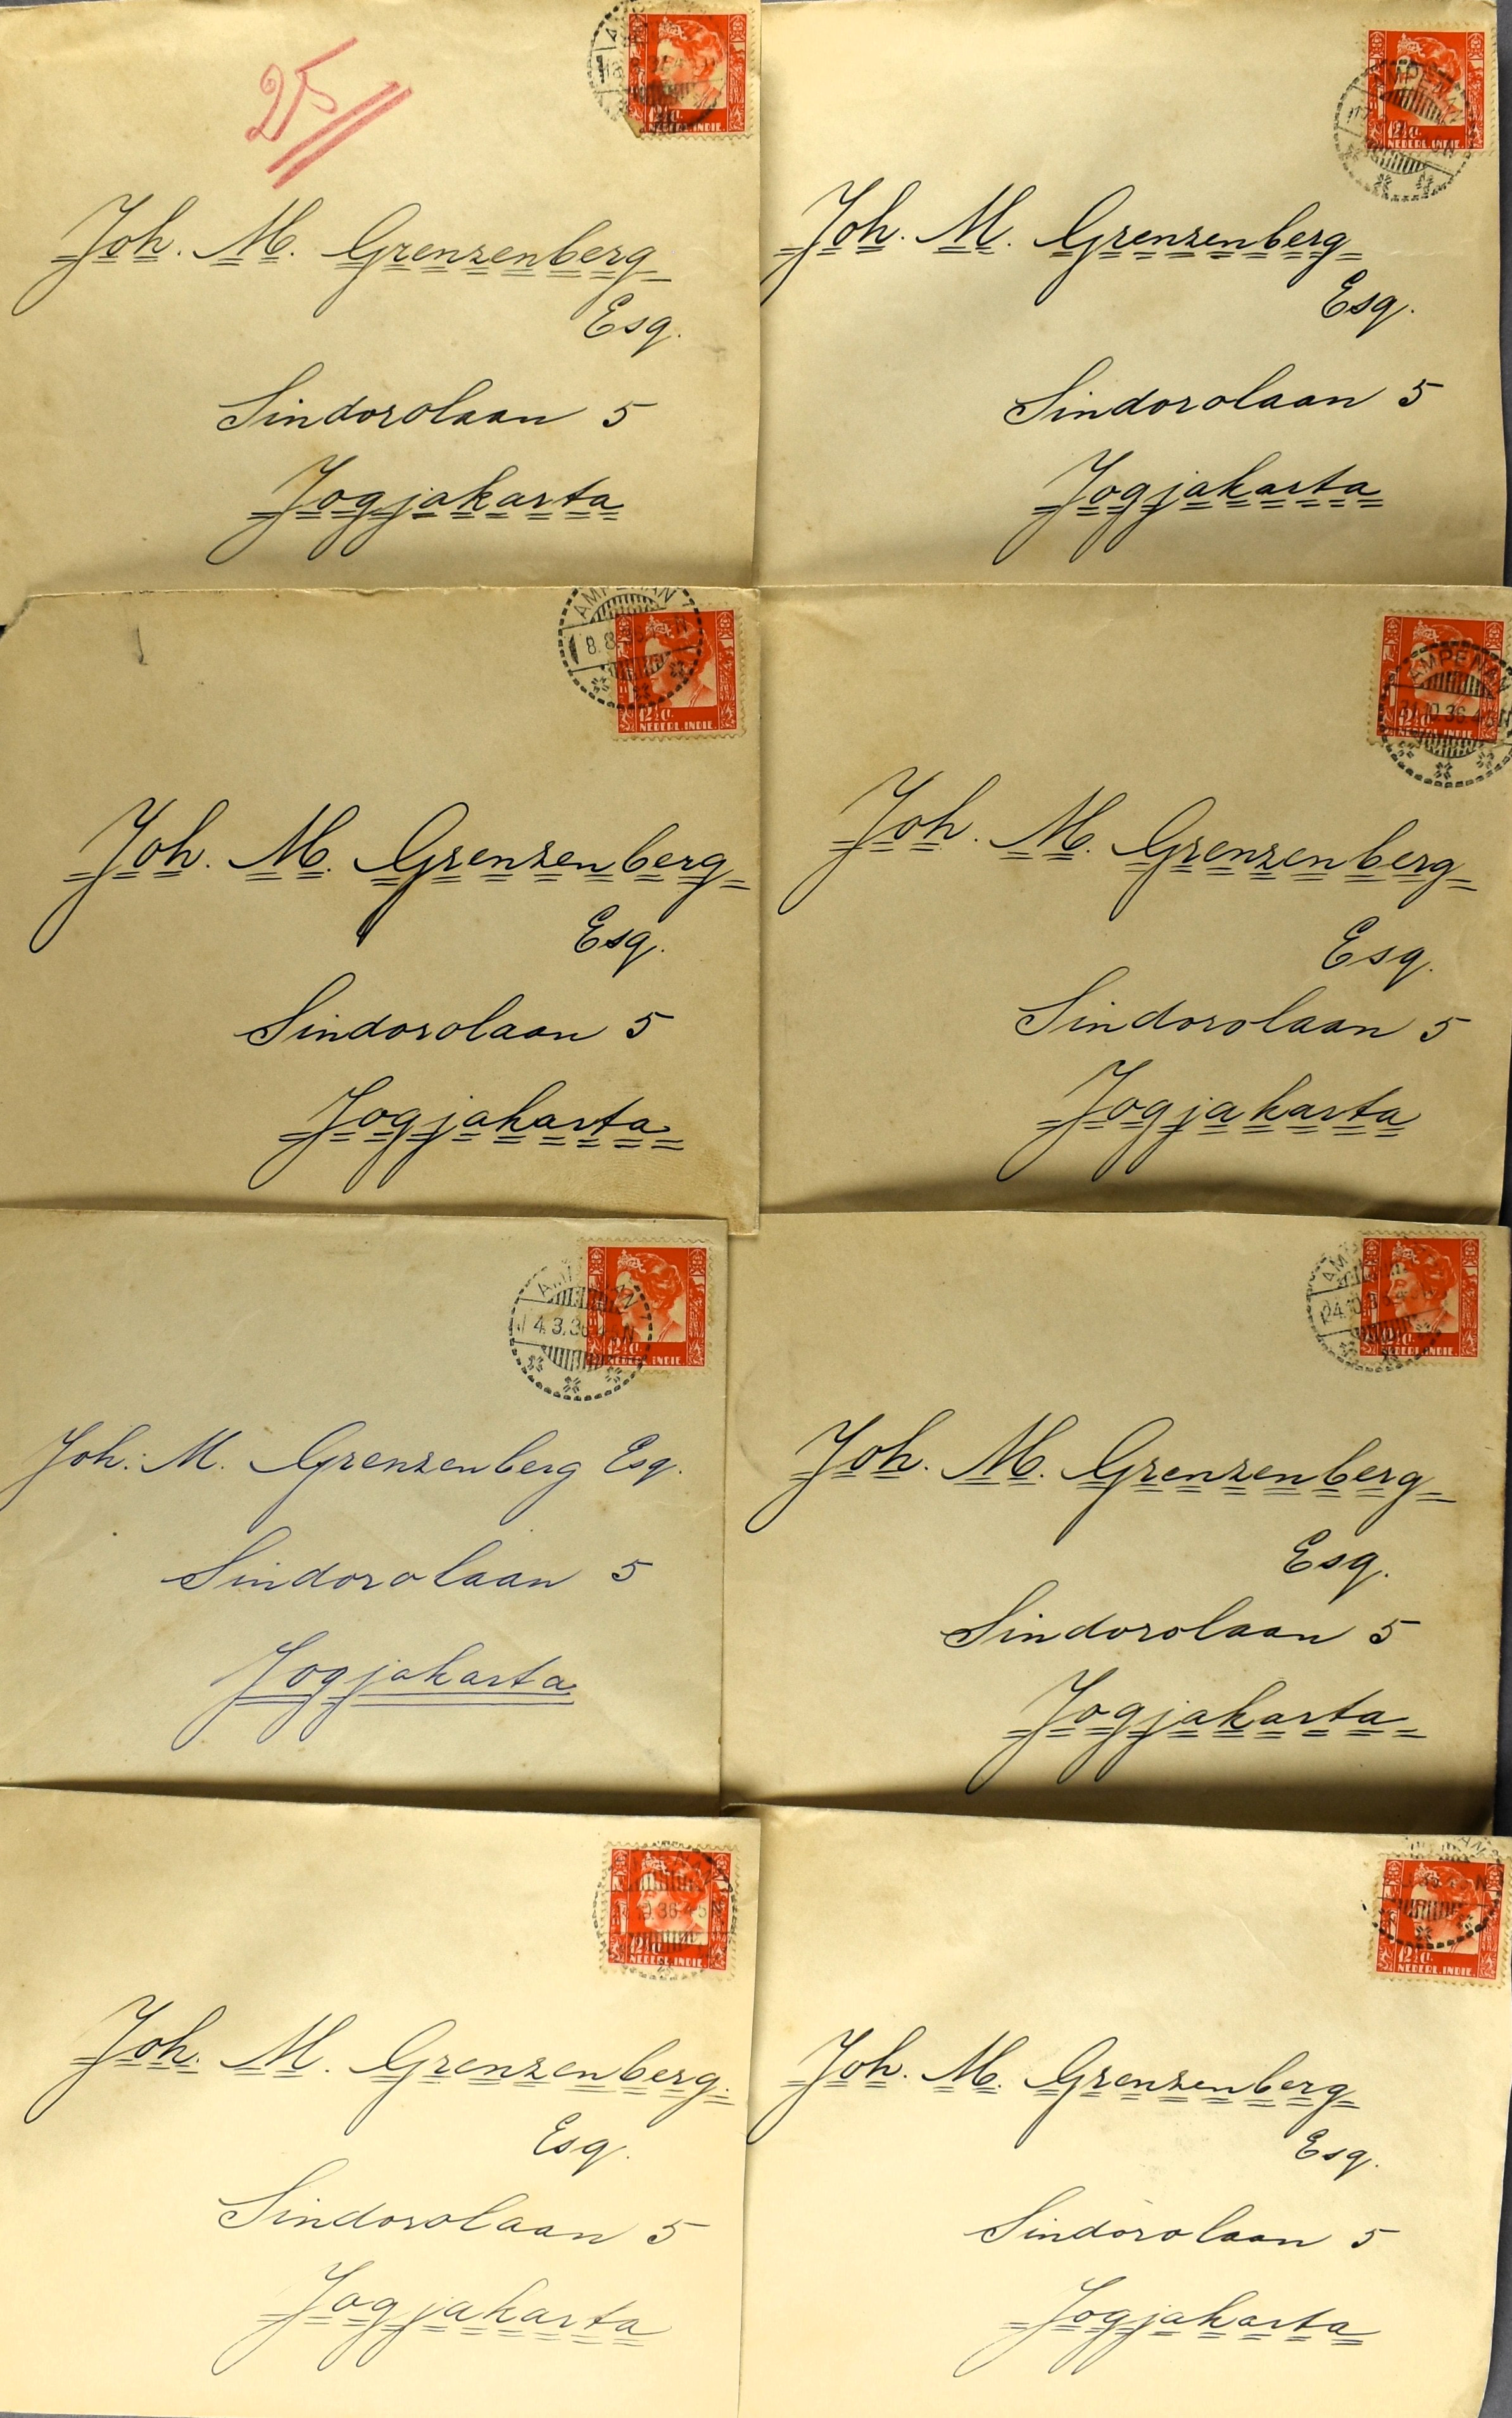 25
12½ ct.
NEDERL. INDIE
Joh. M. Grenzenberg
Esq.
Sindorolaan 5
Jogjakarta
AMPENAN
12½ ct.
NEDERL. INDIE
Joh. M. Grenzenberg
Esq.
Sindorolaan 5
Jogjakarta
AMPENAN
8.8
12½ ct.
NEDERL. INDIE
Joh. M. Grenzenberg
Esq.
Sindorolaan 5
Jogjakarta
AMPENAN
10.36.4-5N
12½ ct.
NEDERL. INDIE
Joh. M. Grenzenberg
Esq.
Sindorolaan 5
Jogjakarta
4.3.36
N
12½ ct.
NEDERL. INDIE
Joh. M. Grenzenberg Esq.
Sindorolaan 5
Jogjakarta
24.10.3
12½ ct.
NEDERL. INDIE
Joh. M. Grenzenberg
Esq.
Sindorolaan 5
Jogjakarta
36.4-5N
12½ ct.
NEDERL. INDIE
Joh. M. Grenzenberg
Esq.
Sindorolaan 5
Jogjakarta
12½ ct.
NEDERL. INDIE
Joh. M. Grenzenberg
Esq.
Sindorolaan 5
Jogjakarta